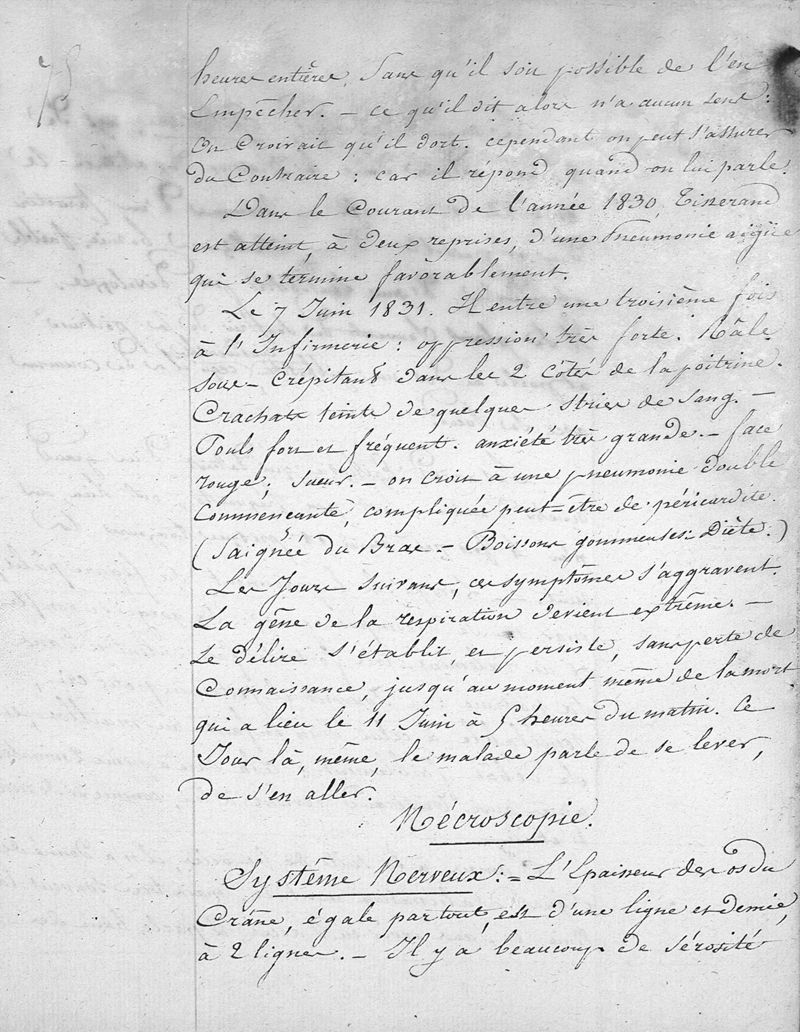 75
heures entières, sans qu'il soit possible de l'en
Empêcher. – ce qu'il dit alors n'a aucun sens :
On Croirait qu'il dort. cependant on peut s'assurer
du Contraire : car il répond quand on lui parle.
Dans le Courant de l'année 1830, Tisserand
est atteint, à deux reprises, d'une Pneumonie aigüe
qui se termine favorablement.
Le 7 Juin 1831. Il entre une troisième fois
à l'Infirmerie : oppression très forte. Râle
sous-crépitant dans les 2 côtés de la poitrine.
Crachats teints de quelques stries de sang. –
Pouls fort et fréquent. anxiété très grande. – face
rouge ; sueur. – on croit à une pneumonie double
commençante, compliquée peut-être de péricardite.
(Saignée du Bras. – Boissons gommeuses. Diète.)
Les Jours suivans, ces symptômes s'aggravent.
La gêne de la respiration devient extrême. –
Le délire s'établit, et persiste, sans perte de
Connaissance, jusqu'au moment même de la mort
qui a lieu le 11 Juin à 5 heures du matin. Ce
Jour là, même, le malade parle de se lever,
de s'en aller.
Nécroscopie.
Système Nerveux : = L'Epaisseur des os du
Crâne, égale partout, est d'une ligne et demie,
à 2 lignes. – Il y a beaucoup de sérosité